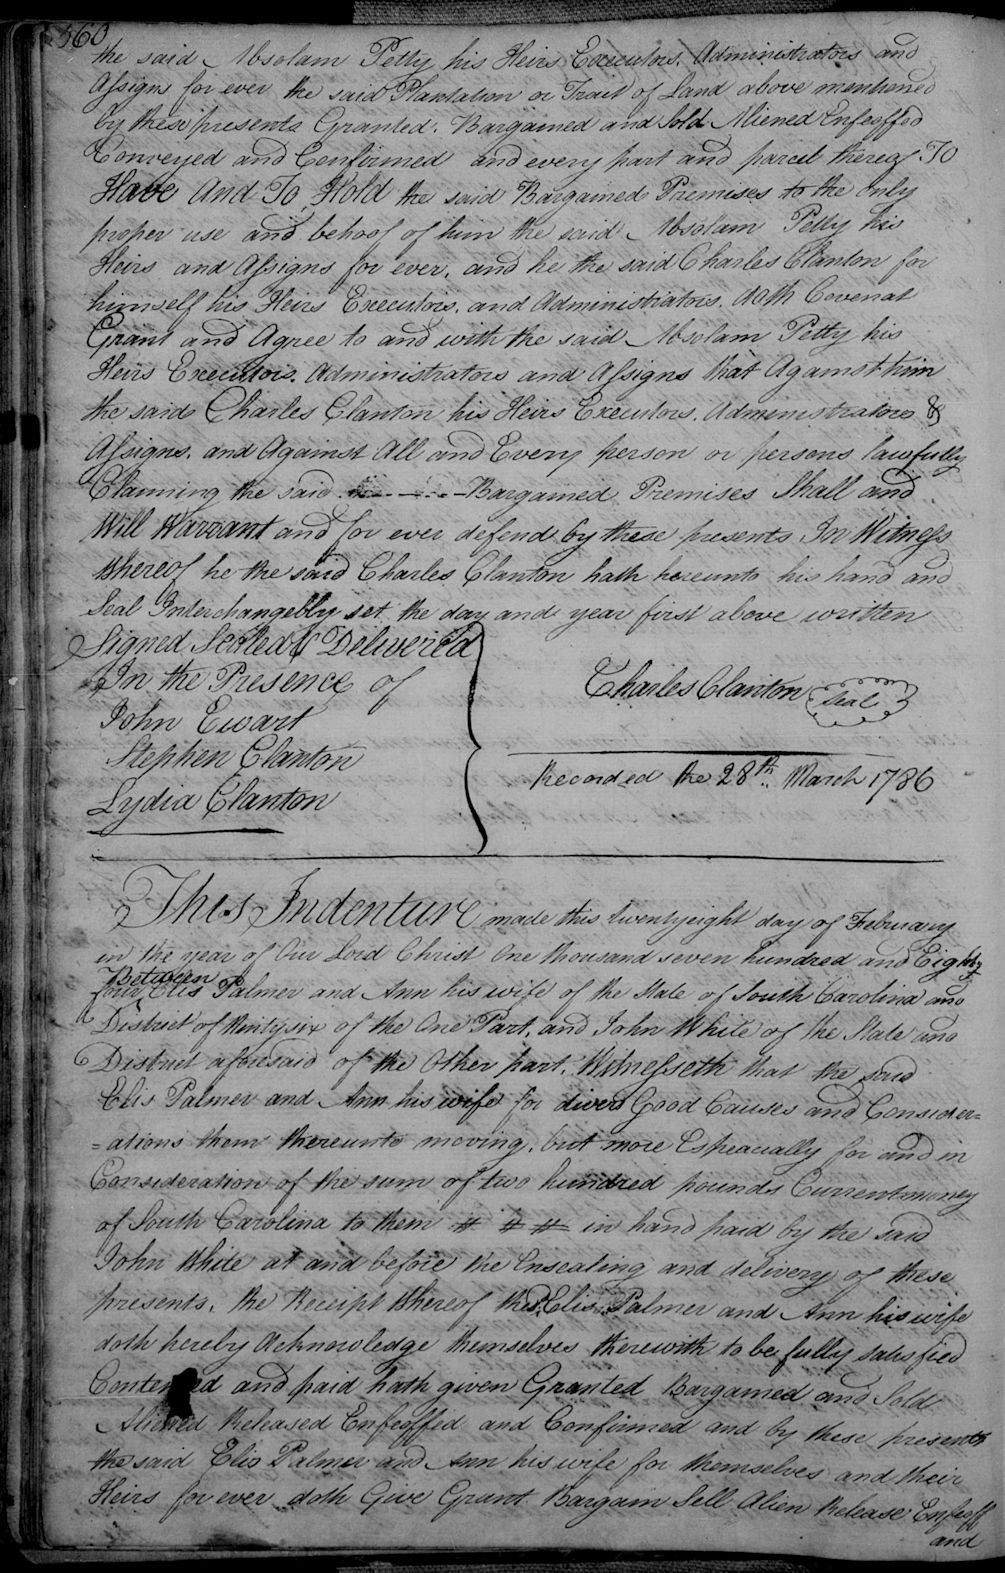 360
the said Absolam Petty his Heirs Executors, Administrators and
Assigns for ever the said Plantation or Trait of Land above mentioned
by these presents Granted, Bargained and Sold Aliened Enfeoffed
Conveyed and Confirmed and every part and parcel thereof To
Have And To Hold the said Bargained Premises to the only
proper use and behoof of him the said Absolam Petty his
Heirs and Assigns for ever, and he the said Charles Clanton for
himself his Heirs Executors, and Administrators, doth Covenat
Grant and Agree to and with the said Absolam Petty his
Heirs Executors, Administrators and Assigns that Against him
the said Charles Clanton his Heirs Executors, Administrators &
Assigns, and Against All and Every person or persons lawfully
Claiming the said Bargained Premises Shall and
Will Warrant and for ever defend by these presents In Witness
Whereof he the said Charles Clanton hath hereunto his hand and
Seal Interchangebly set the day and year first above written
Signed Sealed & Deliver'd
In the Presence of
John Ewart
Stephen Clanton
Lydia Clanton
Charles Clanton Seal
Recorded the 28th March 1786
This Indenture made this twentyeight day of February
in the year of Our Lord Christ One thousand seven hundred and Eighty
Between
four Elis Palmer and Ann his wife of the State of South Carolina and
District of thirtysix of the One Part, and John White of the State and
District aforesaid of the Other part, Witnesseth that the said
Elis Palmer and Ann his wife for divers Good Causes and Consider=
=ations them thereunto moving, but more Espeacially for and in
Consideration of the sum of two hundred pounds Current money
of South Carolina to them # # # in hand paid by the said
John White at and before the Ensealing and delivery of these
presents, the Receipt Whereof the sd. Elis Palmer and Ann his wife
doth hereby Acknowledge themselves therewith to be fully satisfied
Contented and paid hath given Granted Bargained and Sold
Aliened Released Enfeoffed and Confirmed and by these presents
the said Elis Palmer and Ann his wife for themselves and their
Heirs for ever doth Give Grant Bargain Sell Alien Release Enfeoff
and